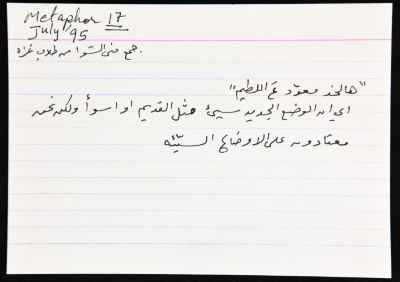 Metaphor 17
July/95
جمع منى الشوا من طلاب غزة.
"هالخد معوّد عَ اللطيم"
اي ان الوضع الجديد سيئ مثل القديم او اسوأ ولكن نحن
معتادون على الاوضاع السيّئه